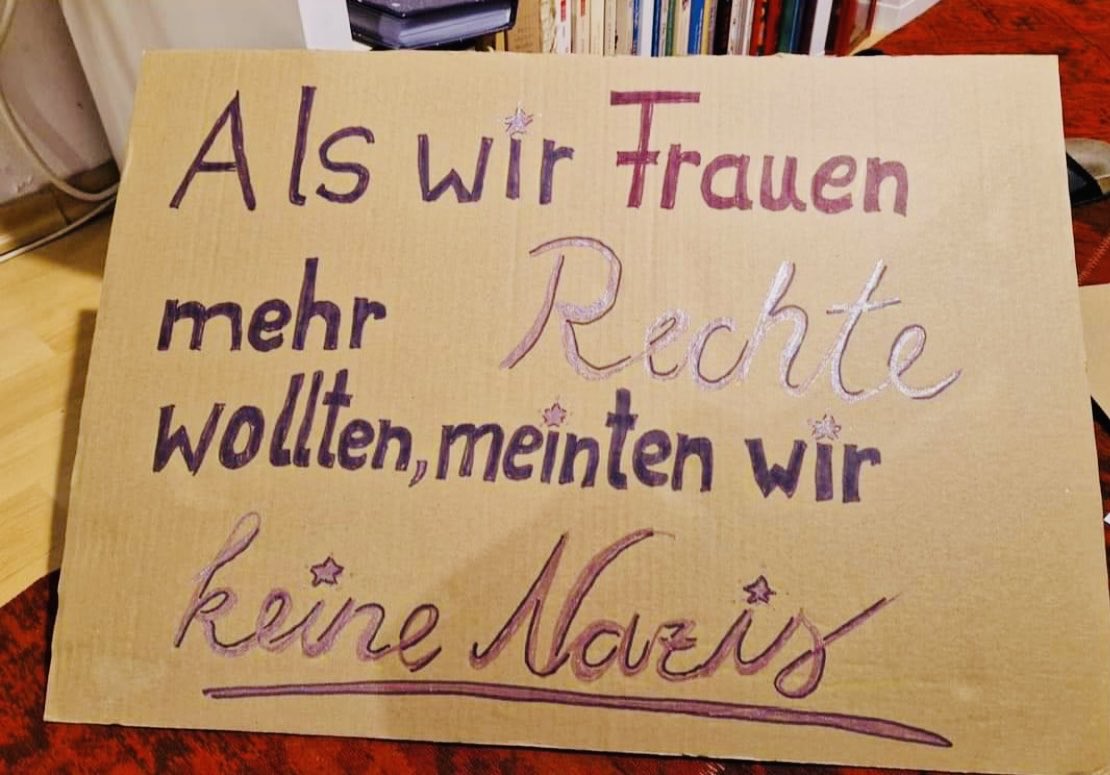 Als wir Frauen
mehr Rechte
wollten, meinten wir
keine Nazis